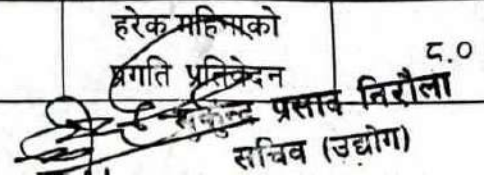 हरेक महिनाको
प्रगति प्रतिवेदन
८.०
मुकुन्द प्रसाद निरौला
सचिव (उद्योग)